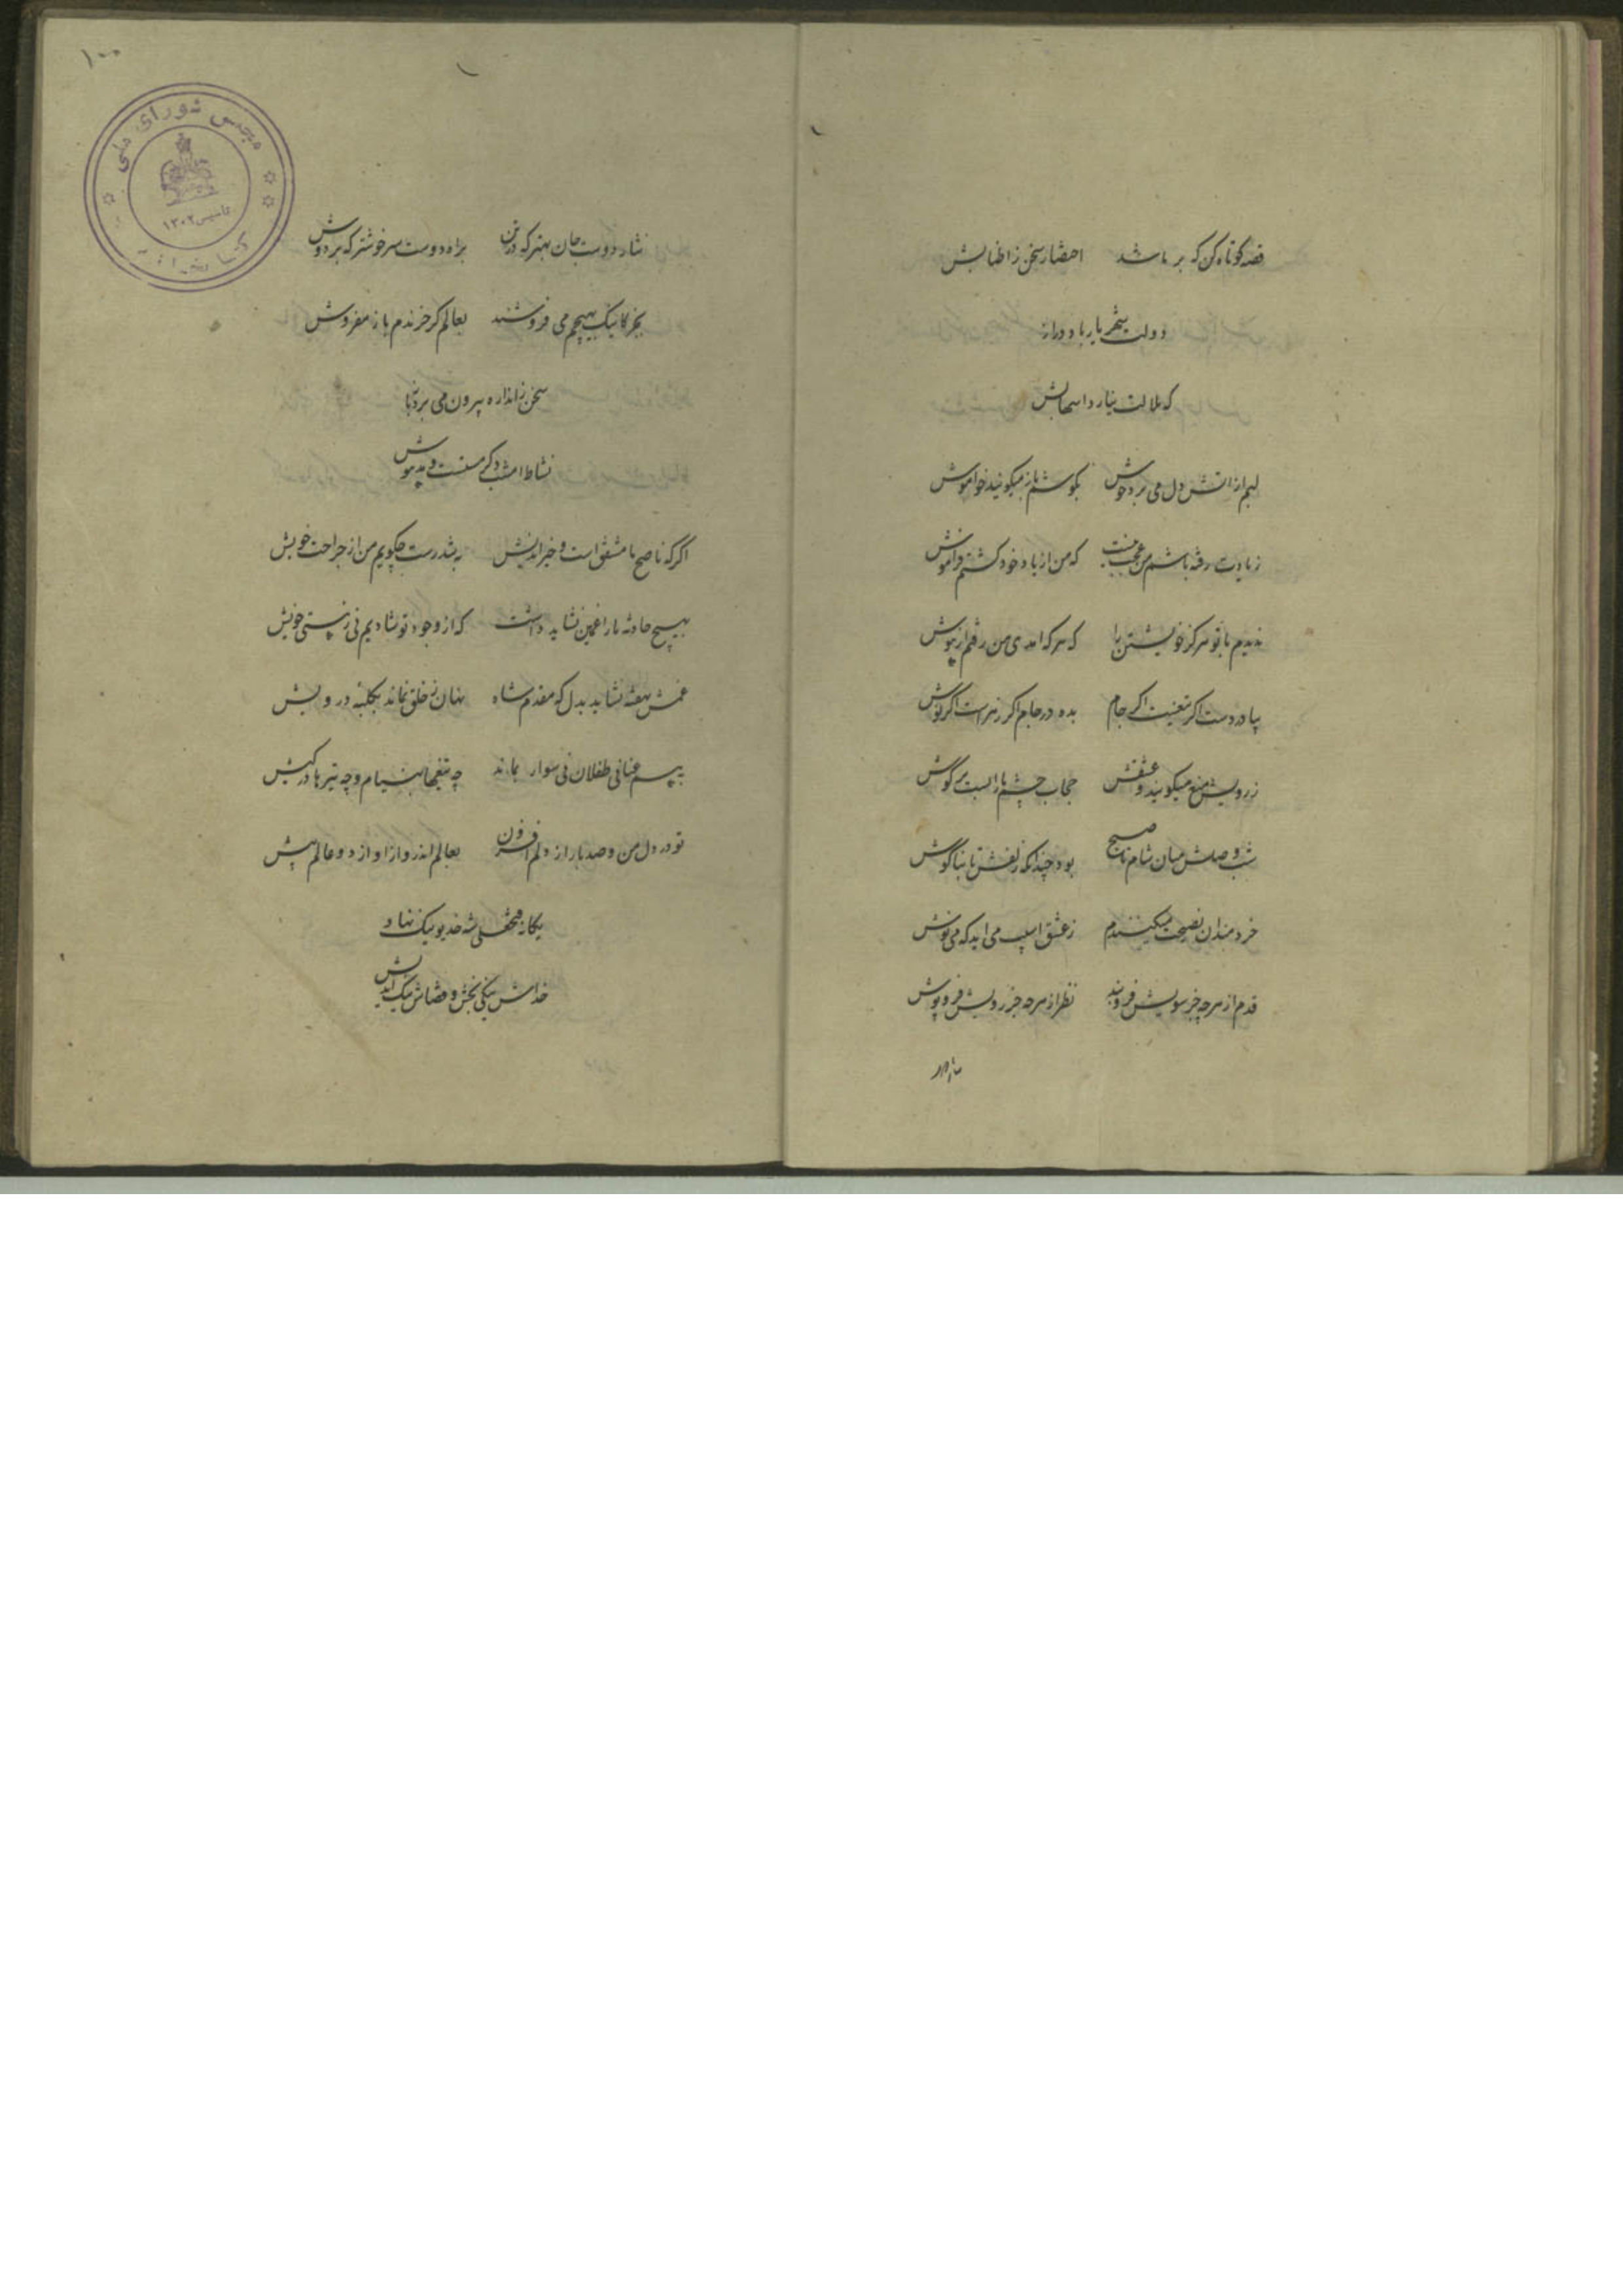 قصه کوتاه کن که بر ما شد احضار سخن ز اطنابش
دولت شهریار باد دراز
که ملالت نیارد اسهابش
لبم از آتش دل می برد جوش بگوشم باز میگویند خواموش
ز یادت رفته باشم من عجب نیست که من از یاد خود گشتم فراموش
ندیدم با تو هرگز خویشتن را که هر گه امدی من رفتم از هوش
بیا در دست اگر تیغست اگر جام بده در جام اگر زهر است اگر نوش
ز رویش منع میگویند و عشقش حجاب چشم ما را بست بر گوش
شب وصلش میان شام تا صبح بود چندانکه زلفش تا بناگوش
خردمندان نصیحت میکنندم ز عشق اسیب می اید که می نوش
قدم از هر چه جز سویش فرو بند نظر از هر چه جز رویش فرو پوش
نثار
۱۰۰
مجلس شورای ملی
تاسیس ۱۳۰۲
نثار دوست جان بهتر که در تن براه دوست سر خوشتر که بر دوش
بجز کانیک بهیچم می فروشند بعالم گر خرندم باز مفروش
سخن ز اندازه بیرون می برد
نشاط امشب دگر مست و مدهوش
اگر که ناصح ما مشفق است و خیراندیش به تندرست چگویم من از جراحت خویش
بهیچ حادثه ما را غمین نشاید داشت که از وجود تو شادیم نی ز هستی خویش
غمش نهفته نشاید بدل که مقدم شاه نهان ز خلق نماند بکلبه درویش
بهم عنانی طفلان نی سوار بماند چه تیغها به نیام و چه تیرها در کیش
تو در دل من و صد بار از دلم افزون بعالم اندر و از او از دو عالم بیش
یگانه فتحعلی شه خدیو نیک نهاد
خداش نیکی بخش و قضاش نیک اندیش